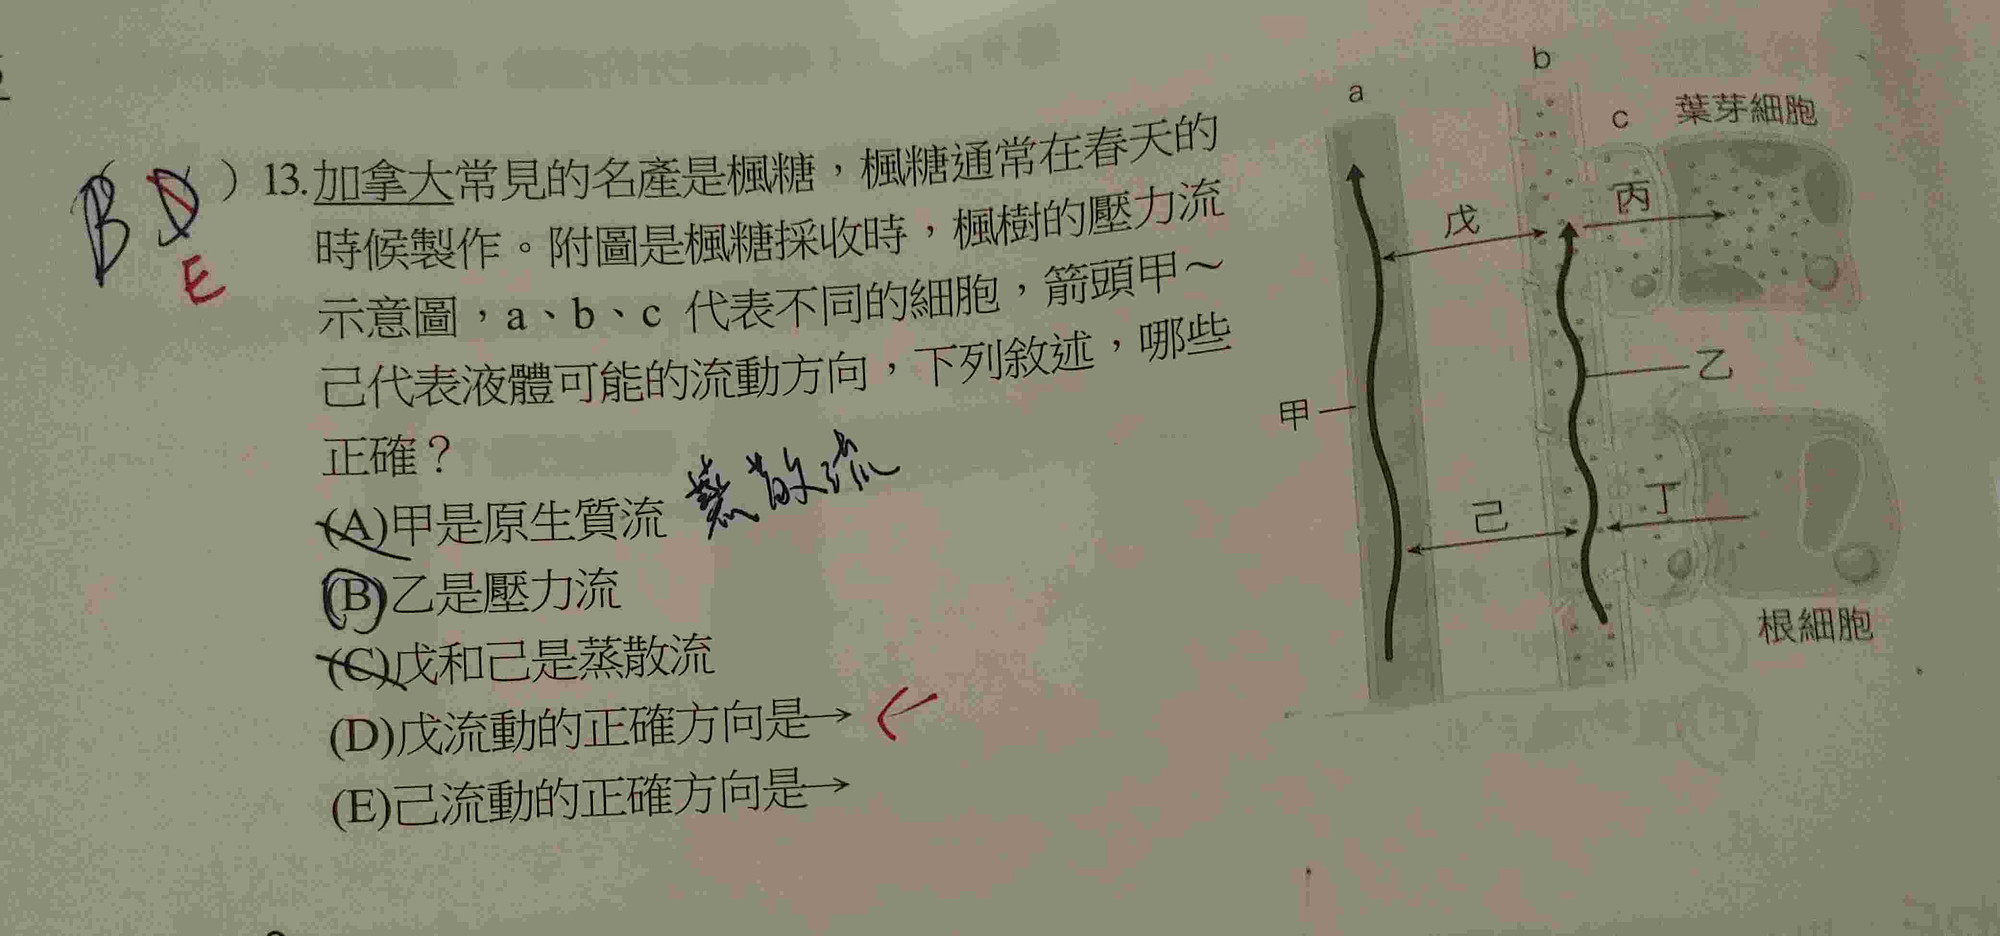 (BD E) 13.加拿大常見的名產是楓糖，楓糖通常在春天的
時候製作。附圖是楓糖採收時，楓樹的壓力流
示意圖，a、b、c 代表不同的細胞，箭頭甲～
己代表液體可能的流動方向，下列敘述，哪些
正確？
(A)甲是原生質流 蒸散流
(B)乙是壓力流
(C)戊和己是蒸散流
(D)戊流動的正確方向是→ ←
(E)己流動的正確方向是→
a
b
c
葉芽細胞
丙
戊
乙
甲
己
丁
根細胞